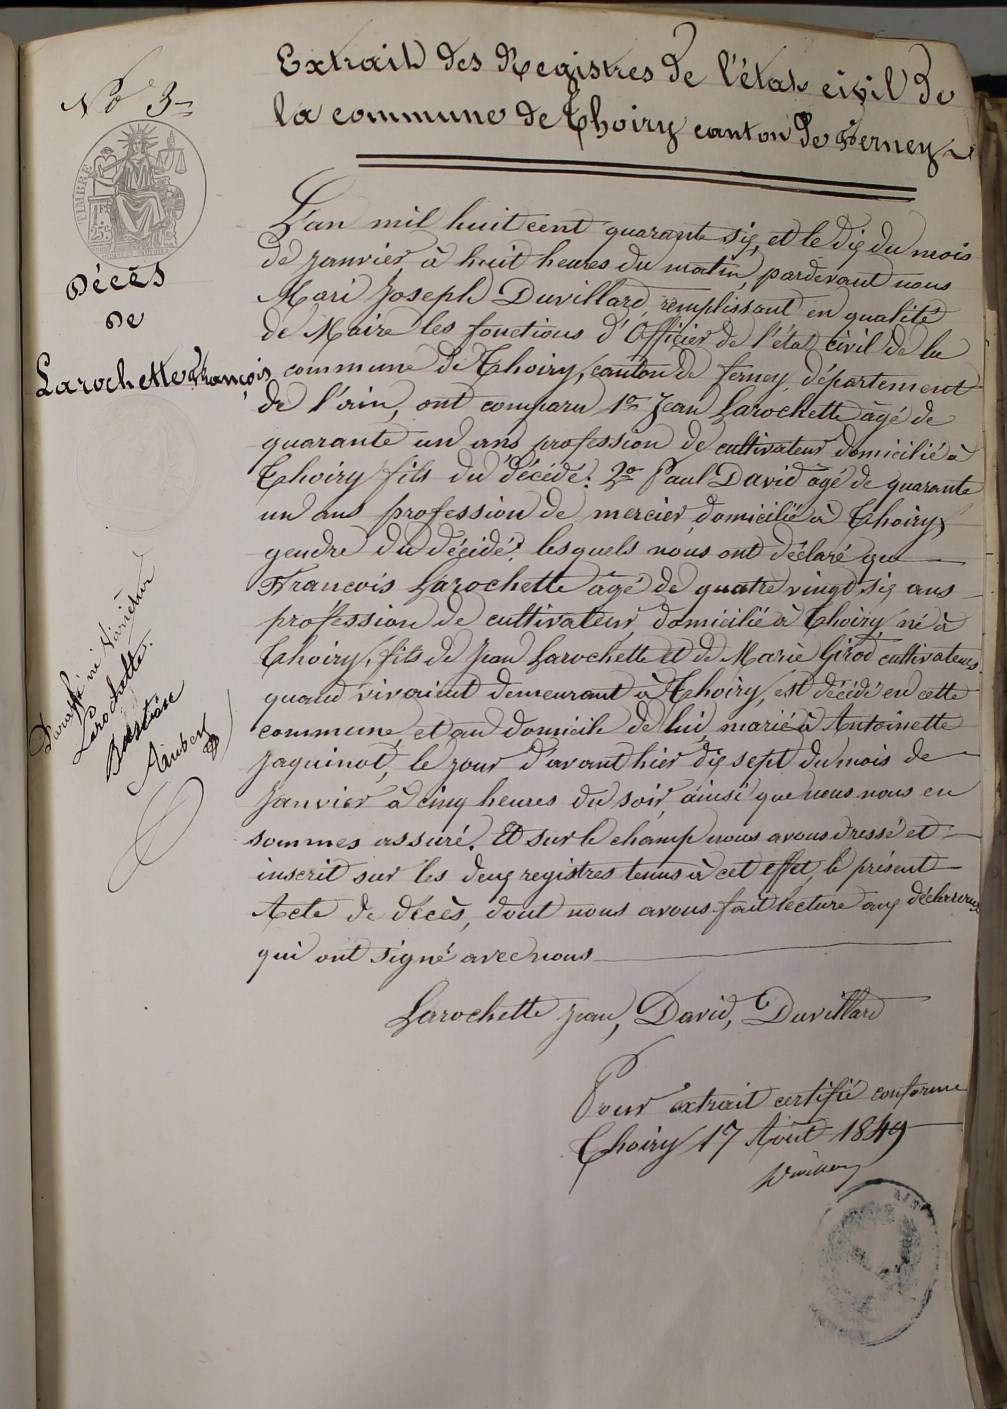 Extrait des Registres de l'état civil de
la commune de Thoiry canton de Ferney
N° 3
TIMBRE
25c
Décès
De
Larochette François
L'an mil huit cent quarante six, et le dix du mois
de janvier à huit heures du matin, pardevant nous
Mari Joseph Duvillard, remplissant en qualité
de Maire les fonctions d'Officier de l'état civil de la
commune de Thoiry, canton de ferney, département
de l'ain, ont comparu 1° Jean Larochette âgé de
quarante un ans profession de cultivateur domicilié à
Thoiry fils du décédé. 2° Paul David âgé de quarante
un ans profession de mercier, domicilié à Thoiry,
gendre du décédé; lesquels nous ont déclaré que
Francois Larochette âgé de quatre vingt six ans
profession de cultivateur, domicilié à Thoiry, né à
Thoiry, fils de Jean Larochette et de Marie Girod cultivateurs
quand vivaient demeurant à Thoiry, est décédé en cette
commune, et au domicile de lui, marié à Antoinette
Jaquinot, le jour d'avant hier dix sept du mois de
Janvier à cinq heures du soir, ainsi que nous nous en
sommes assuré. Et sur le champ nous avons dressé et
inscrit sur les deux registres tenus à cet effet, le présent
Acte de décès, dont nous avons fait lecture aux déclarans
qui ont signé avec nous
Larochette Jean, David, Duvillard
Pour extrait certifié conforme
Thoiry 17 Août 1849
Paraphé ne varietur
Larochette
Bastian
Aimbert